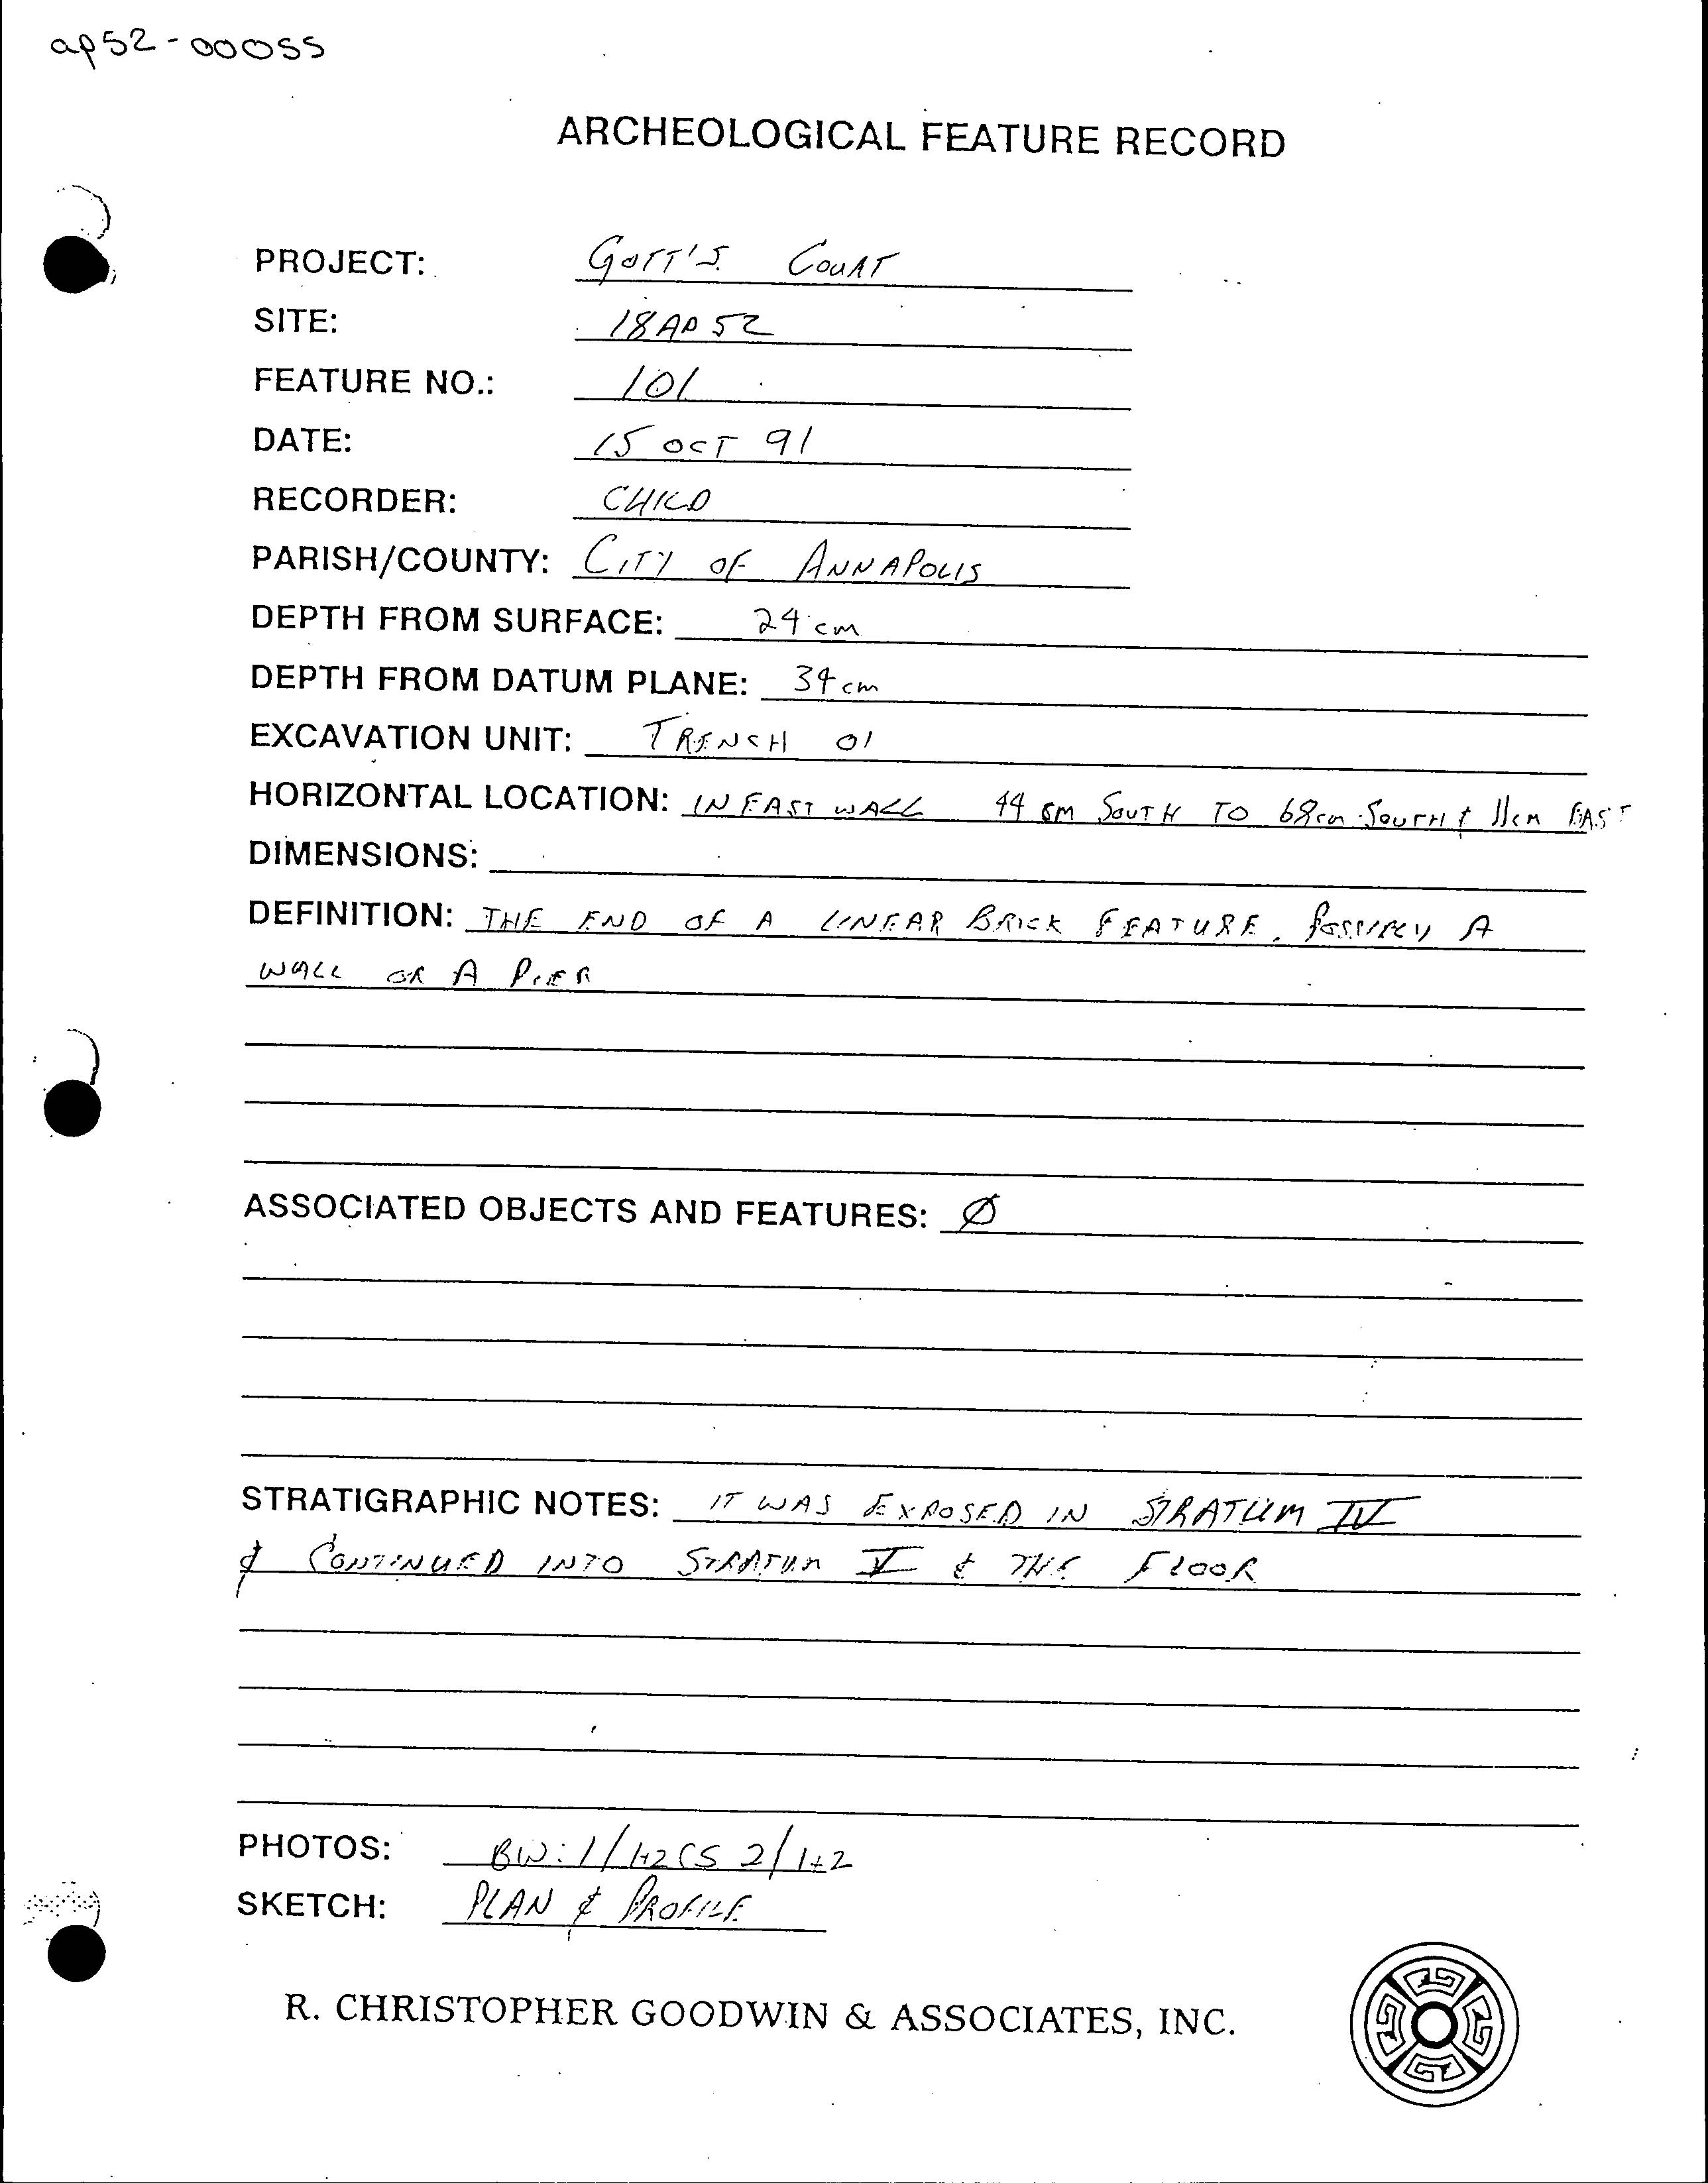 ap52-00055
ARCHEOLOGICAL FEATURE RECORD
PROJECT: GOTT'S COURT
SITE: 18AP52
FEATURE NO.: 101
DATE: 15 OCT 91
RECORDER: CHILD
PARISH/COUNTY: CITY OF ANNAPOLIS
DEPTH FROM SURFACE: 24 cm
DEPTH FROM DATUM PLANE: 34 cm
EXCAVATION UNIT: TRENCH 01
HORIZONTAL LOCATION: IN EAST WALL 44 cm SOUTH TO 68cm SOUTH & 11cm EAST
DIMENSIONS:
DEFINITION: THE END OF A LINEAR BRICK FEATURE. POSSIBLY A
WALL OR A PIER
ASSOCIATED OBJECTS AND FEATURES: Ø
STRATIGRAPHIC NOTES: IT WAS EXPOSED IN STRATUM IV
& CONTINUED INTO STRATUM V & THE FLOOR
PHOTOS: BW: 1/1+2 CS 2/1+2
SKETCH: PLAN & PROFILE
R. CHRISTOPHER GOODWIN & ASSOCIATES, INC.